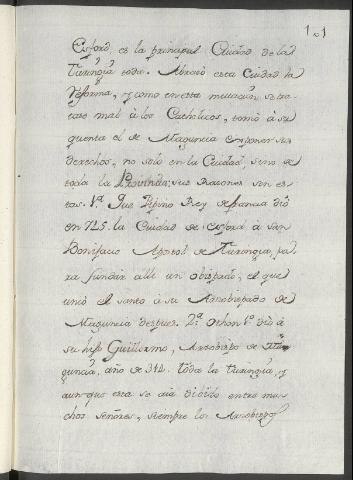 101
Erford, es la principal Ciudad de la
Turingia toda. Abrazó esta Ciudad la
Reforma, y como en esta mutacion se tra-
tase mal à los Catholicos, tomò à su
quenta el de Maguncia exponer sus
derechos, no solo en la Ciudad, sino de
toda la Provincia; sus Razones son es-
tas. 1ª Que Pipino Rey de francia dió
en 725. la Ciudad de Erford à San
Bonifacio Apostol de Turingia, pa-
ra fundar alli un obispado, el que
unió el santo à su Arzobispado de
Maguncia despues. 2ª Othon 1º dió à
su hijo Guillermo, Arzobispo de Ma-
guncia, año de 312. toda la Turingia, y
aunque esta se aia dibidido entre mu-
chos señores, siempre los Arzobispos